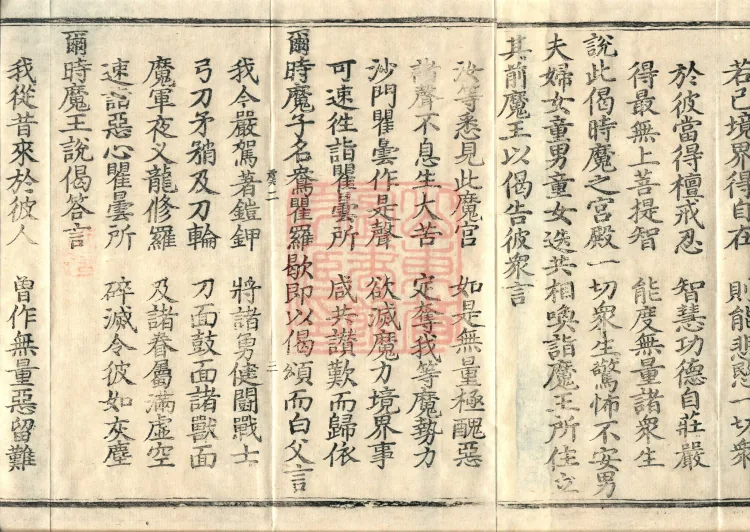 若己境界得自在　則能悲愍一切衆
於彼當得檀戒忍　智慧功德自莊嚴
得最無上菩提智　能度無量諸衆生
說此偈時魔之宮殿一切衆生驚怖不安男
夫婦女童男童女迭共相喚詣魔王所住立
其前魔王以偈告彼衆言
汝等悉見此魔宮　如是無量極醜惡
諸聲不息生大苦　定奪我等魔勢力
沙門瞿曇作是聲　欲滅魔力境界事
可速往詣瞿曇所　咸共讚歎而歸依
爾時魔子名鴦瞿羅歇即以偈頌而白父言
我今嚴駕著鎧鉀　將諸勇健鬪戰士
弓刀矛矟及刀輪　刀面鼓面諸獸面
魔軍夜叉龍修羅　及諸眷屬滿虛空
速詣惡心瞿曇所　碎滅令彼如灰塵
爾時魔王說偈答言
我從昔來於彼人　曾作無量惡留難